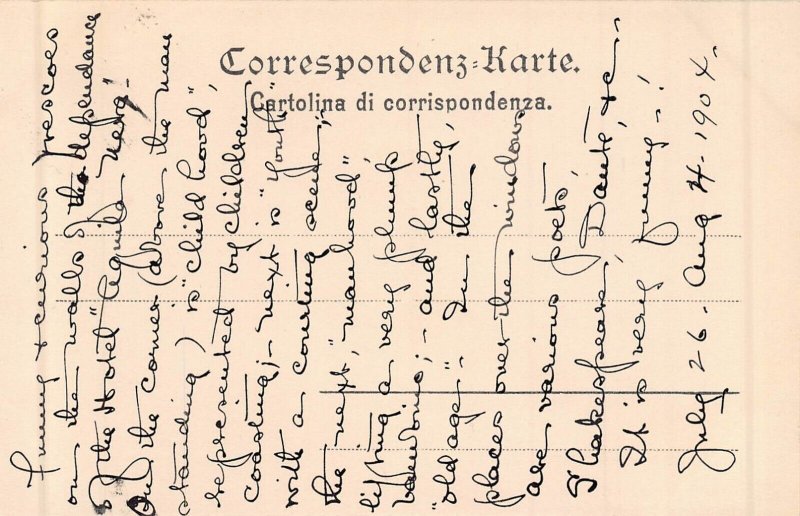 Correspondenz-Karte.
Cartolina di corrispondenza.
funny & curious frescoes
on the walls of the dependance
of the Hotel "Aquila Nera"
On the corner (above the man
standing) is "child hood",
represented by children
coasting; - next is "youth"
with a courting scene;
the next, "manhood",
lifting a very plump
; - and lastly,
"old age". - In the
places over the windows
are various poets,
Shakespeare, Dante, &c -
It is very funny - !
July 26 - Aug 4 - 1904.